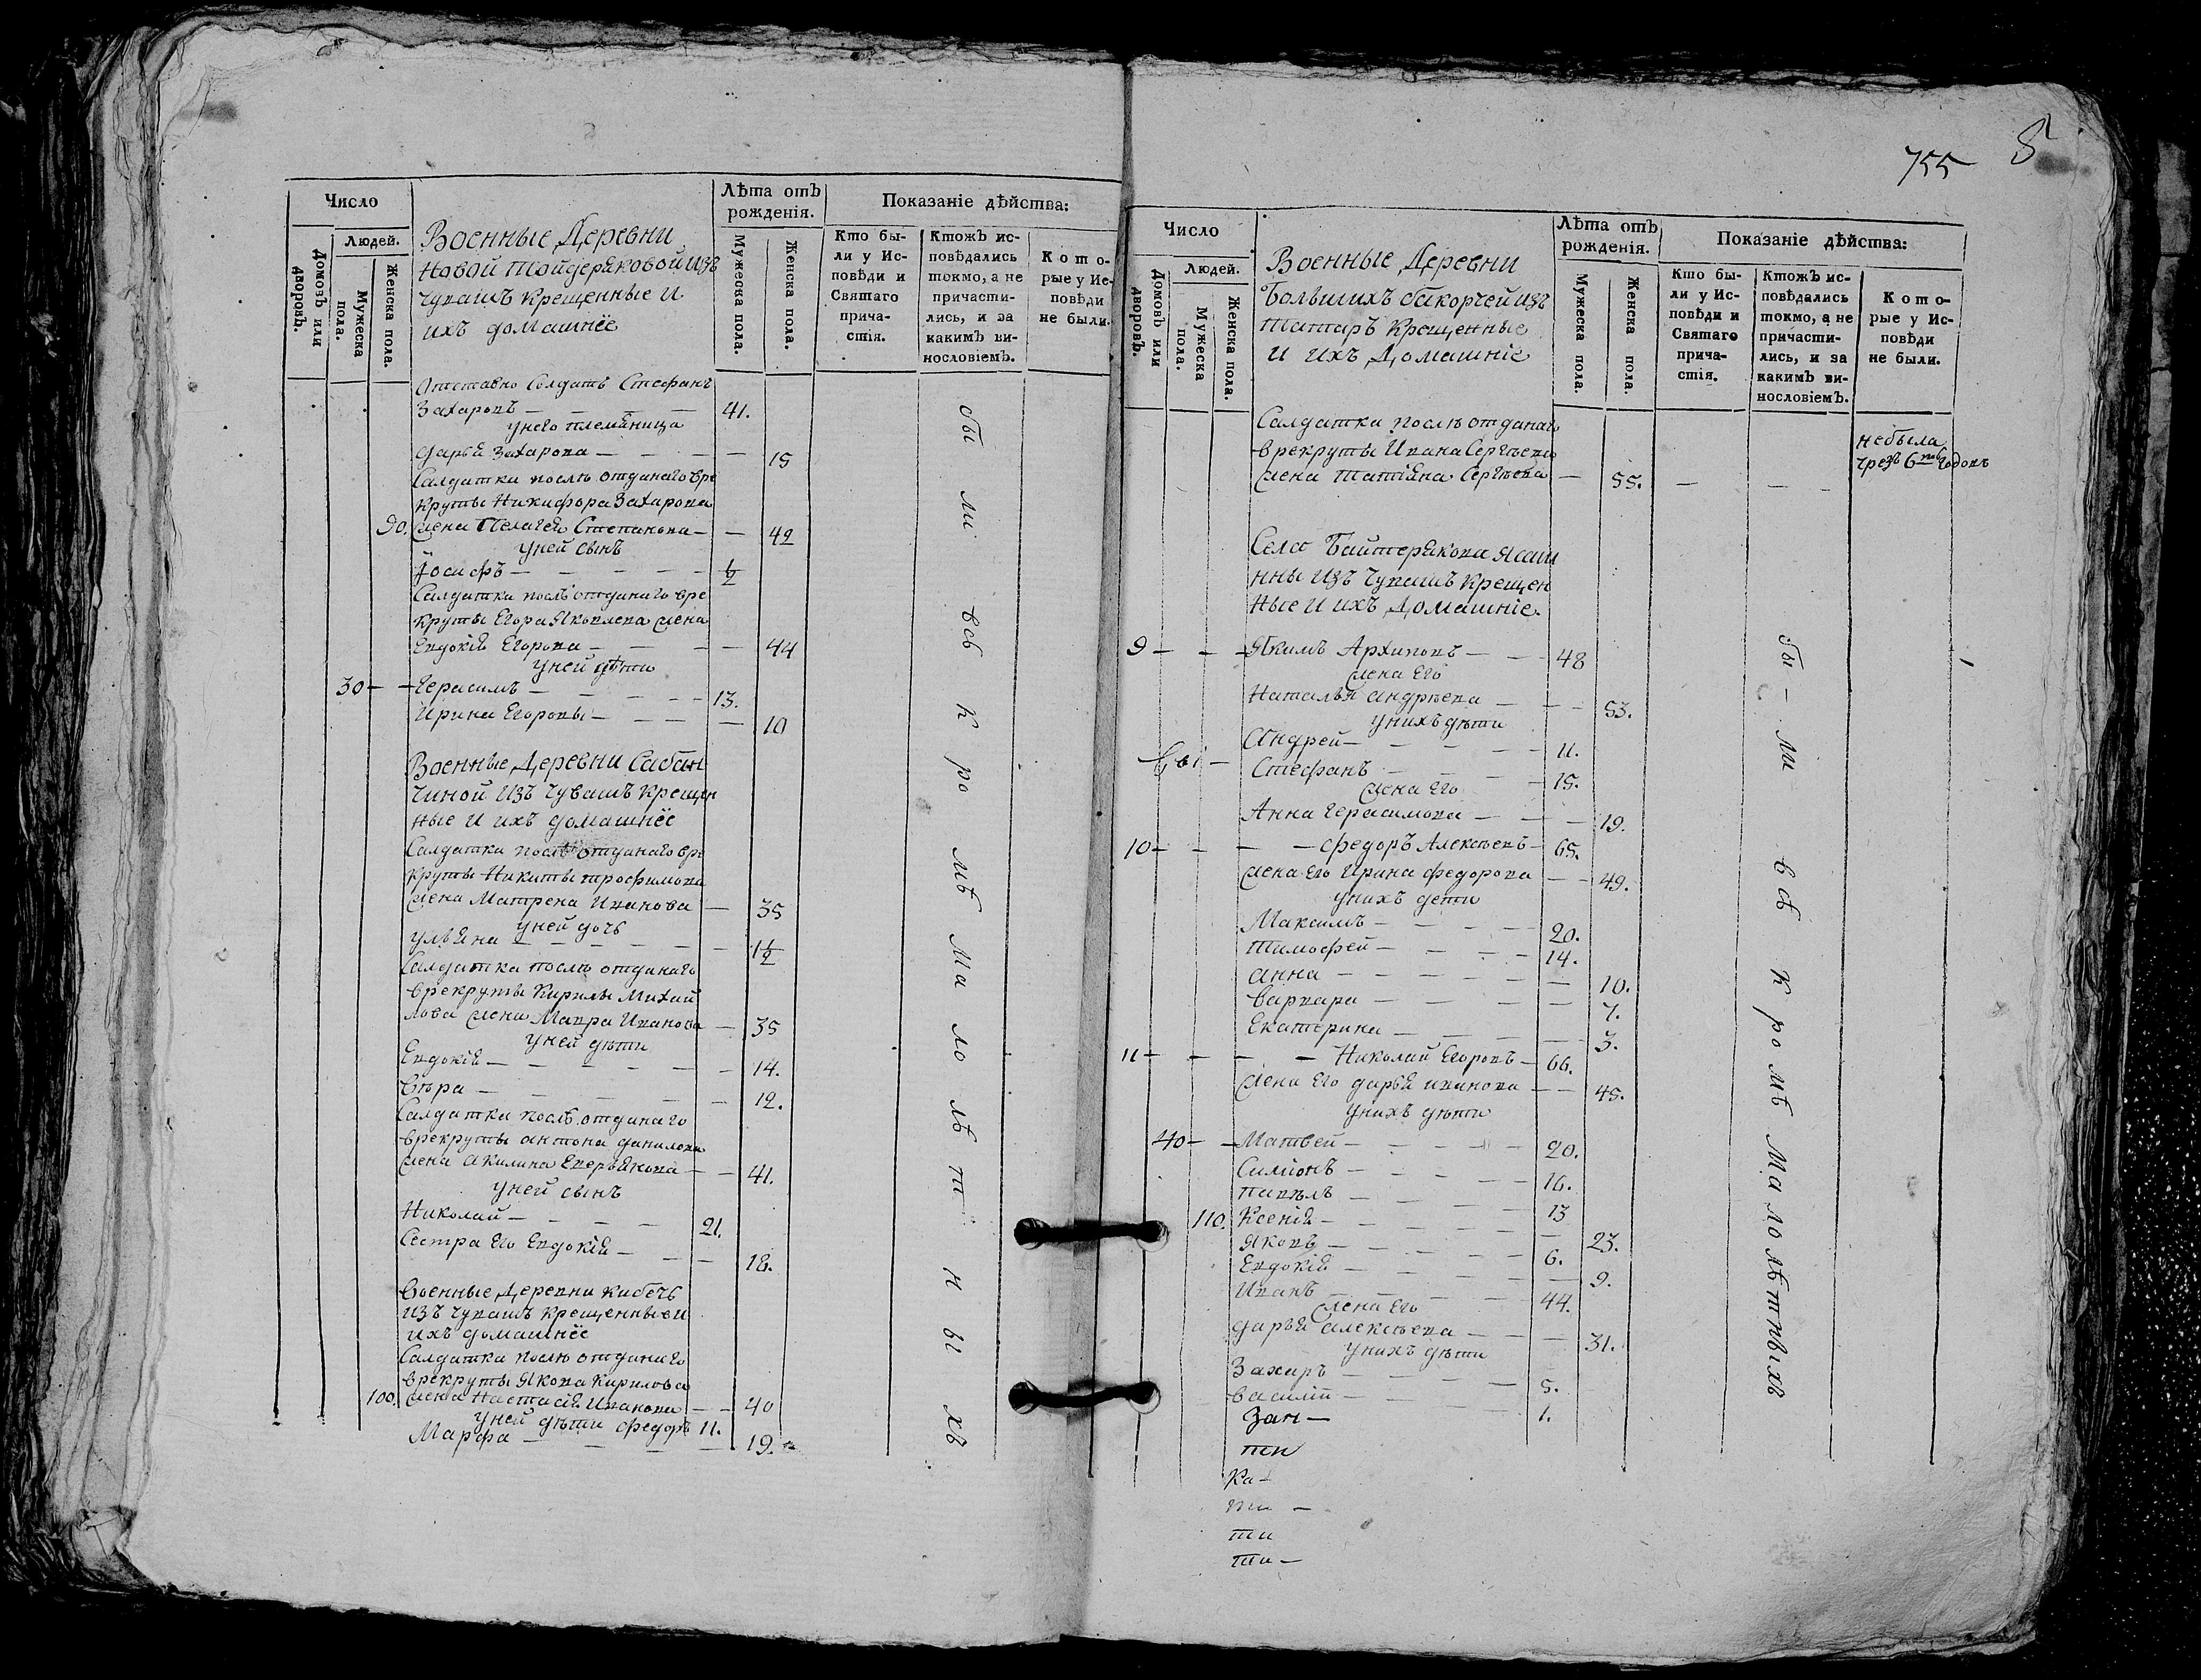 Число
Людей.
Домовъ или дворовъ.
Мужеска пола.
Женска пола.
Военные Деревни
Новой Тойдеряковой изъ
чувашъ крещенные и
ихъ домашнёе
Лѣта отъ рожденія.
Мужеска пола.
Женска пола.
Показаніе дѣйства:
Кто бы-
ли у Ис-
повѣди и
Святаго
прича-
стія.
Ктожъ ис-
повѣдались
токмо, а не
причасти-
лись, и за
какимъ ви-
нословіемъ.
Кото-
рые у Ис-
повѣди
не были.
Отставно Солдатъ Стефанъ
Захаровъ — 41.
унего племяница
Дарья Захарова — 15
Салдатка послѣ отданаго вре
круты Никифора Захарова
90. жена Пелагея Степанова — 42
уней сынъ
Іосифъ — ½
Салдатка послѣ отданаго вре
круты Егора Яковлева жена
Евдокія Егорова — 44
уней дѣти
30 — Герасимъ — 13.
Ирина Егоровы — 10
Военные Деревни Сабан
чиной изъ чувашъ крещен
ные и ихъ домашнёе
Салдатка послѣ отданаго вре
круты Никиты трофимова
жена Матрена Иванова — 35
уней дочь
Ульяна — 1½
Салдатка послѣ отданаго
врекруты Кирилы Михай
лова жена Мавра Иванова — 35
уней дѣти
Евдокія — 14.
Вѣра — 12.
Салдатка послѣ отданаго
врекруты антона данилова
жена Акилина Аверьянова — 41.
уней сынъ
Николай — 21.
Сестра его Евдокія — 18.
Военные Деревни Кибечь
изъ чувашъ крещенные и
ихъ домашнёе
Салдатка послѣ отданаго
врекруты Якова Кирилова
100. жена Настасія Иванова — 40
уней дѣти федоръ 11.
Марфа — 19.
бы ли всѣ кромѣ малолѣтныхъ
755
Число
Людей.
Домовъ или дворовъ.
Мужеска пола.
Женска пола.
Военные Деревни
Большихъ бикорчей изъ
татаръ крещенные
и ихъ Домашніе
Лѣта отъ рожденія.
Мужеска пола.
Женска пола.
Показаніе дѣйства:
Кто бы-
ли у Ис-
повѣди и
Святаго
прича-
стія.
Ктожъ ис-
повѣдались
токмо, а не
причасти-
лись, и за
какимъ ви-
нословіемъ.
Кото-
рые у Ис-
повѣди
не были.
Салдатка послѣ отданаго
врекруты Ивана Сергѣева
жена Татіяна Сергѣева — 55. — — —
небыла
чрезъ 6 годовъ
Села Байтерякова Ясаш
нны изъ чувашъ крещен
ные и ихъ Домашніе.
9 — — Якимъ Архиповъ — 48
жена его
Наталья андрѣева — 53.
унихъ дѣти
Андрей — 11.
Стефанъ — 15.
жена его
Анна Герасимова — 19.
10 — — федоръ Алексѣевъ — 65.
жена его Ирина федорова — 49.
унихъ дети
Максимъ — 20.
Тимофей — 14.
анна — 10.
Варвара — 7.
Екатерина — 3.
11 — — Николай Егоровъ — 66.
жена его дарья иванова — 45.
унихъ дѣти
40 — Матвей — 20.
Симіонъ — 16.
павелъ — 13
110. Ксенія — 23.
Яковъ — 6.
Евдокія — 9.
Иванъ — 44.
жена его
дарья алексѣева — 31.
унихъ дѣти
Захаръ — 5.
Василій — 1.
бы — ли всѣ кромѣ малолѣтныхъ